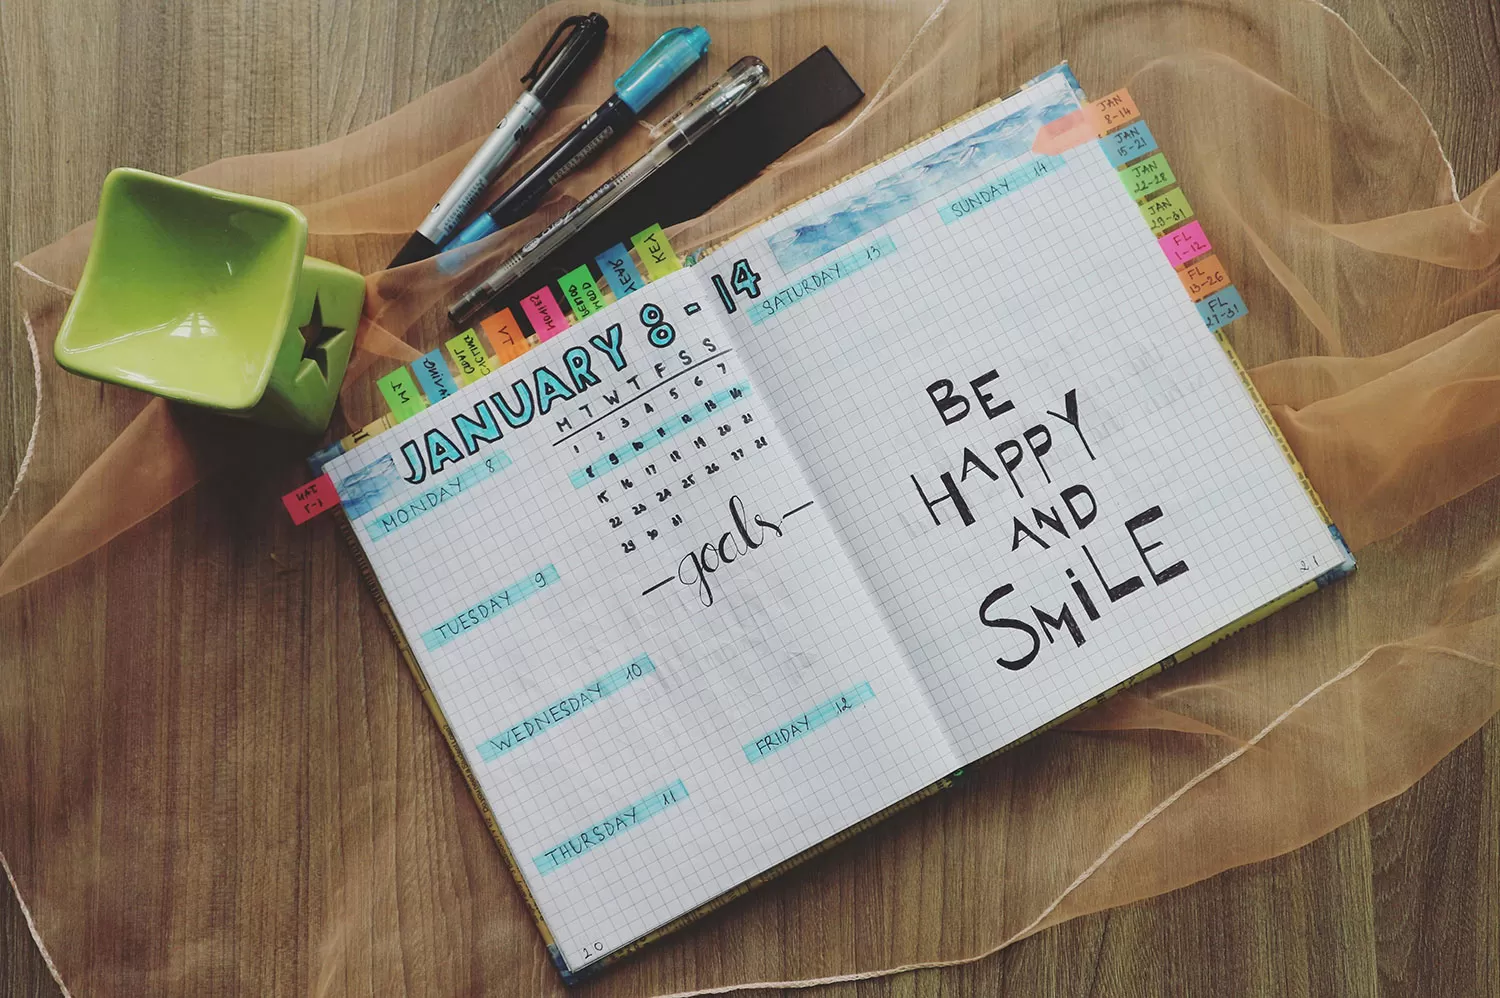 JANUARY 8 - 14
M T W T F S S
1 2 3 4 5 6 7
8 9 10 11 12 13 14
15 16 17 18 19 20 21
22 23 24 25 26 27 28
29 30 31
MONDAY 8
TUESDAY 9
WEDNESDAY 10
THURSDAY 11
-goals-
FRIDAY 12
20
SATURDAY 13
SUNDAY 14
BE
HAPPY
AND
SMiLE
21
KEY
YEAR
MOVIES
JAN
1-7
JAN
8-14
JAN
15-21
JAN
22-28
JAN
29-31
FL
1-12
FL
13-26
FL
27-31